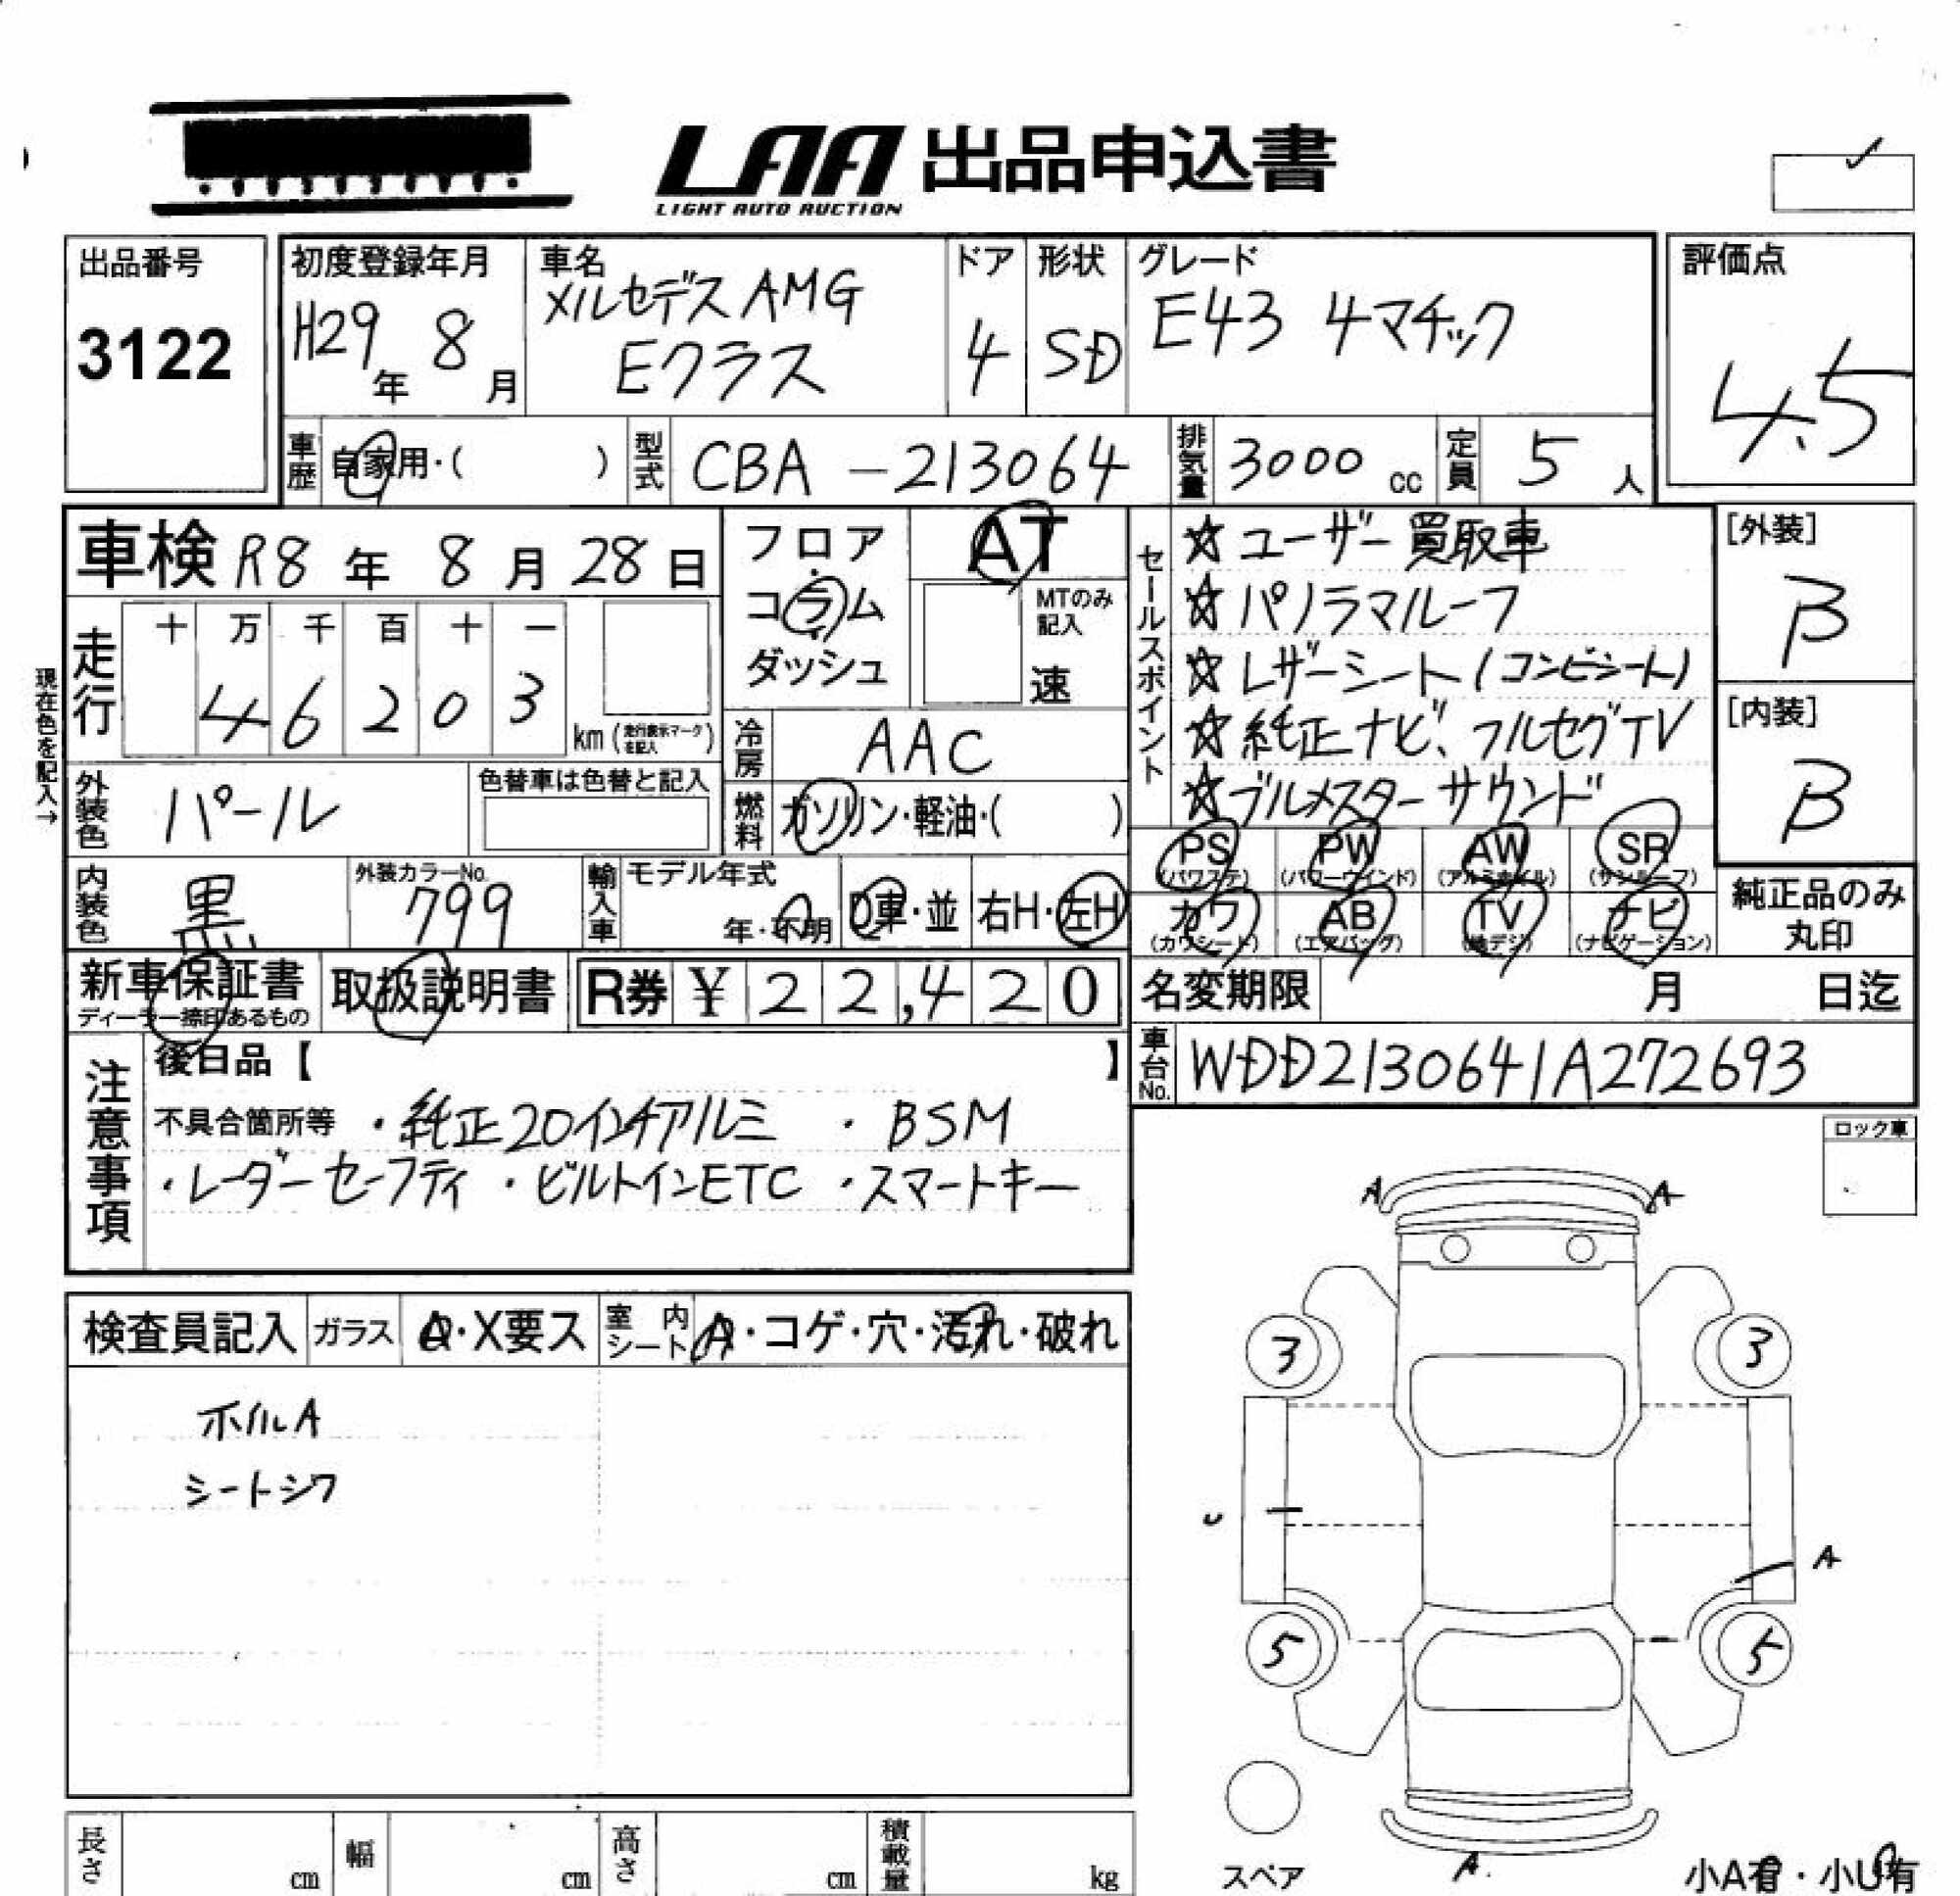 LAA 出品申込書
LIGHT AUTO AUCTION
出品番号
3122
初度登録年月
H29年 8月
車名
メルセデスAMG
Eクラス
ドア
4
形状
SD
グレード
E43 4マチック
評価点
4.5
車歴 自家用・( )
型式 CBA-213064
排気量 3000 cc
定員 5 人
車検 R8年 8月 28日
フロア
コラム
ダッシュ
AT
MTのみ
記入
速
セールスポイント
☆ユーザー買取車
☆パノラマルーフ
☆レザーシート(コンビシート)
☆純正ナビ、フルセグTV
☆ブルメスターサウンド
[外装]
B
[内装]
B
現在色を記入→
走行
十 万 千 百 十 一
4 6 2 0 3
km (走行表示マークを記入)
冷房 AAC
外装色 パール
色替車は色替と記入
燃料 ガソリン・軽油・( )
内装色 黒
外装カラーNo.
799
輸入車
モデル年式
年・不明
D車・並
右H・左H
PS
(パワステ)
PW
(パワーウインド)
AW
(アルミホイル)
SR
(サンルーフ)
カワ
(カワシート)
AB
(エアバッグ)
TV
(地デジ)
ナビ
(ナビゲーション)
純正品のみ
丸印
新車保証書
ディーラー捺印あるもの
取扱説明書
R券 ¥ 22,420
名変期限 月 日迄
車台No. WDD2130641A272693
注意事項
後日品【 】
不具合箇所等 ・純正20インチアルミ ・BSM
・レーダーセーフティ ・ビルトインETC ・スマートキー
ロック車
検査員記入
ガラス
・X要ス
室内
シート
A・コゲ・穴・汚れ・破れ
ホイルA
シートシワ
A A
3 3
U
A
5 5
スペア
A
小A有・小U有
長さ cm
幅 cm
高さ cm
積載量 kg